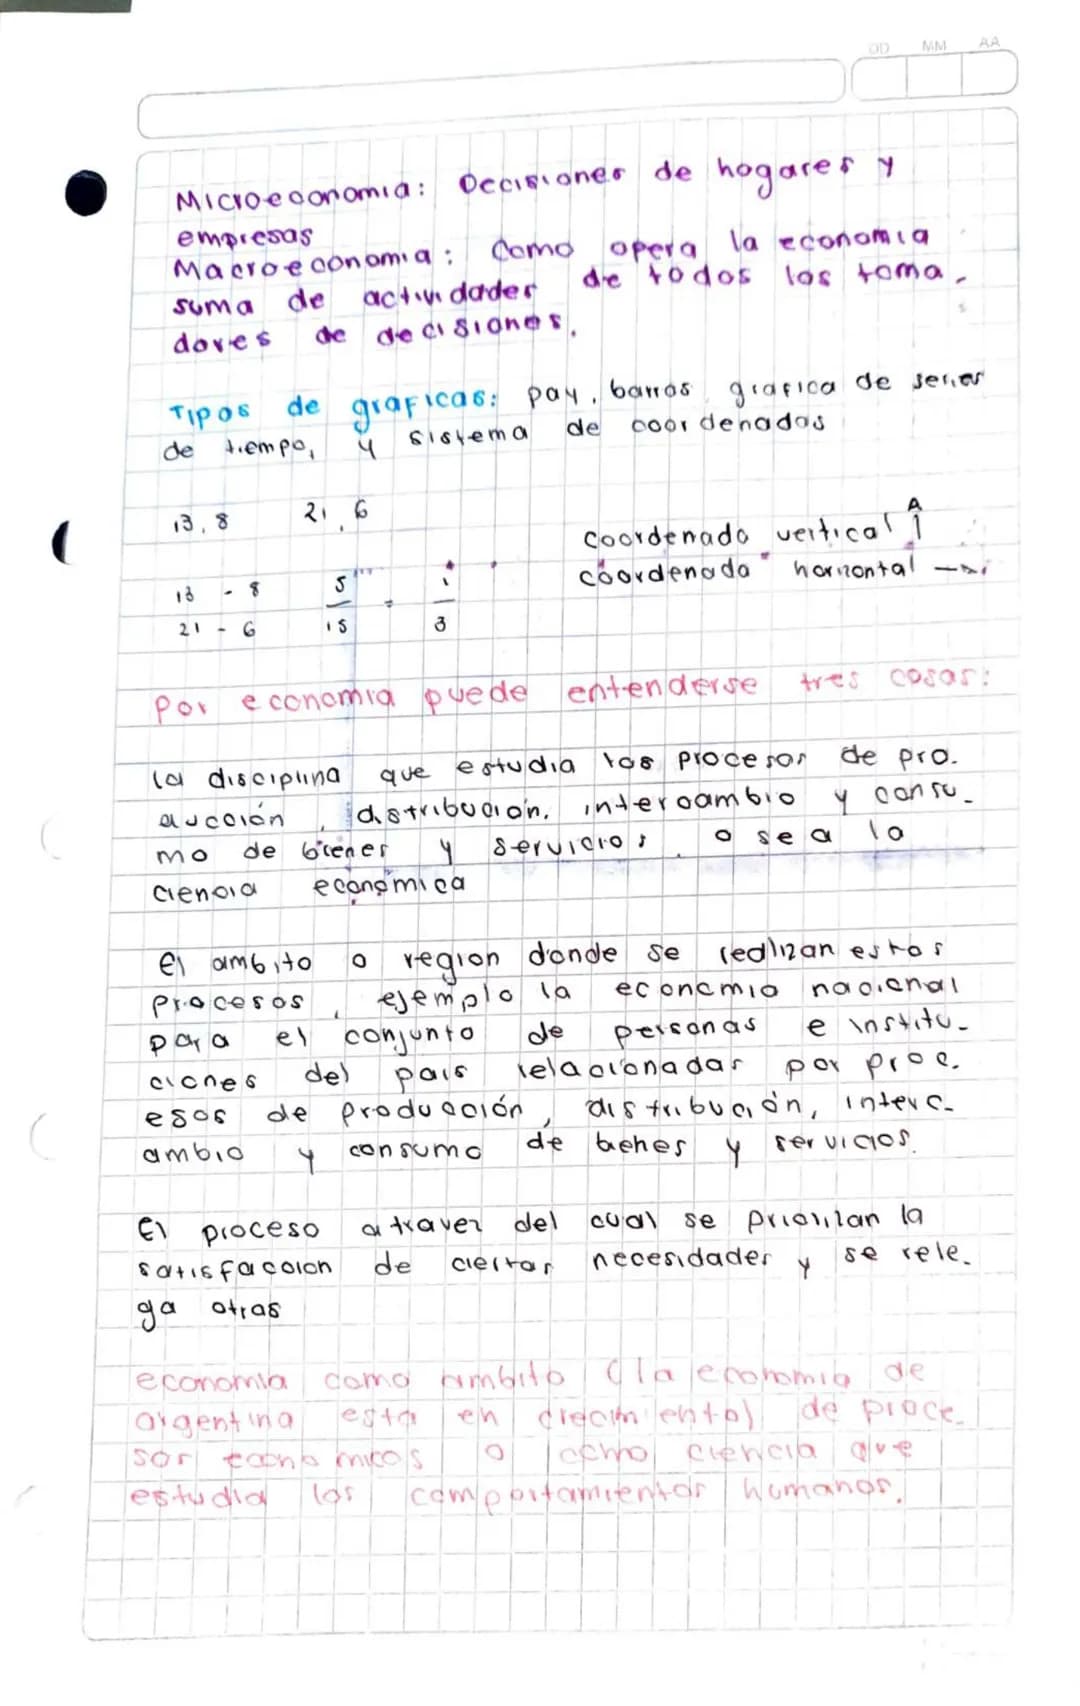 DD MM AA
Microeconomia: Decisiones de hogares y
empresas
Macroeconomia: Como opera la economia
suma de actividades de todos los toma-
dores de decisiones.
Tipos de graficas: pay, barras, grafica de series
de tiempo, y sistema de coordenadas
13, 8 21, 6
coordenada vertical ↑
coordenada horizontal →
13 - 8 5 = 1
21 - 6 15 3
Por economia puede entenderse tres cosas:
la disciplina que estudia los procesos de pro-
ducción, distribución, intercambio y consu-
mo de bienes y servicios, o sea la
ciencia económica
El ambito o region donde se realizan estos
procesos, ejemplo la economia nacional
para el conjunto de personas e institu-
ciones del pais relacionadas por proc-
esos de producción, distribución, interc-
ambio y consumo de bienes y servicios.
El proceso a travez del cual se priorizan la
satisfaccion de ciertas necesidades y se rele-
ga otras
economia como ambito (la economia de
argentina esta en crecimiento) de proce-
sos economicos o como ciencia que
estudia los comportamientos humanos.